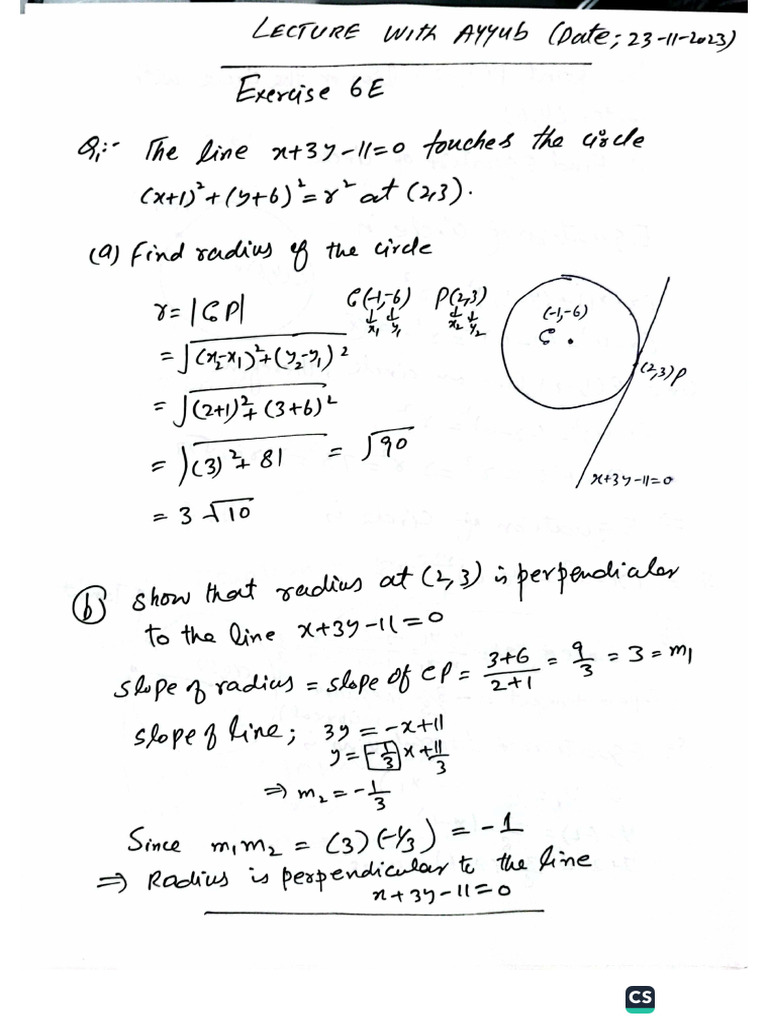 LECTURE With AYYUB (Date; 23-11-2023)
Exercise 6E
Q1:- The line x+3y-11=0 touches the circle
(x+1)²+(y+6)²=r² at (2,3).
(a) Find radius of the circle
r=|CP| C(-1,-6) P(2,3)
↓ ↓ ↓ ↓
x₁ y₁ x₂ y₂
=√(x₂-x₁)²+(y₂-y₁)²
=√(2+1)²+(3+6)²
=√(3)²+81 = √90
= 3√10
(-1,-6)
C .
(2,3)P
x+3y-11=0
(b) Show that radius at (2,3) is perpendicular
to the line x+3y-11=0
Slope of radius = slope of CP = 3+6/2+1 = 9/3 = 3 = m₁
slope of line; 3y = -x+11
y = -1/3 x + 11/3
⇒ m₂ = -1/3
Since m₁m₂ = (3)(-1/3) = -1
⇒ Radius is perpendicular to the line
x+3y-11=0
CS